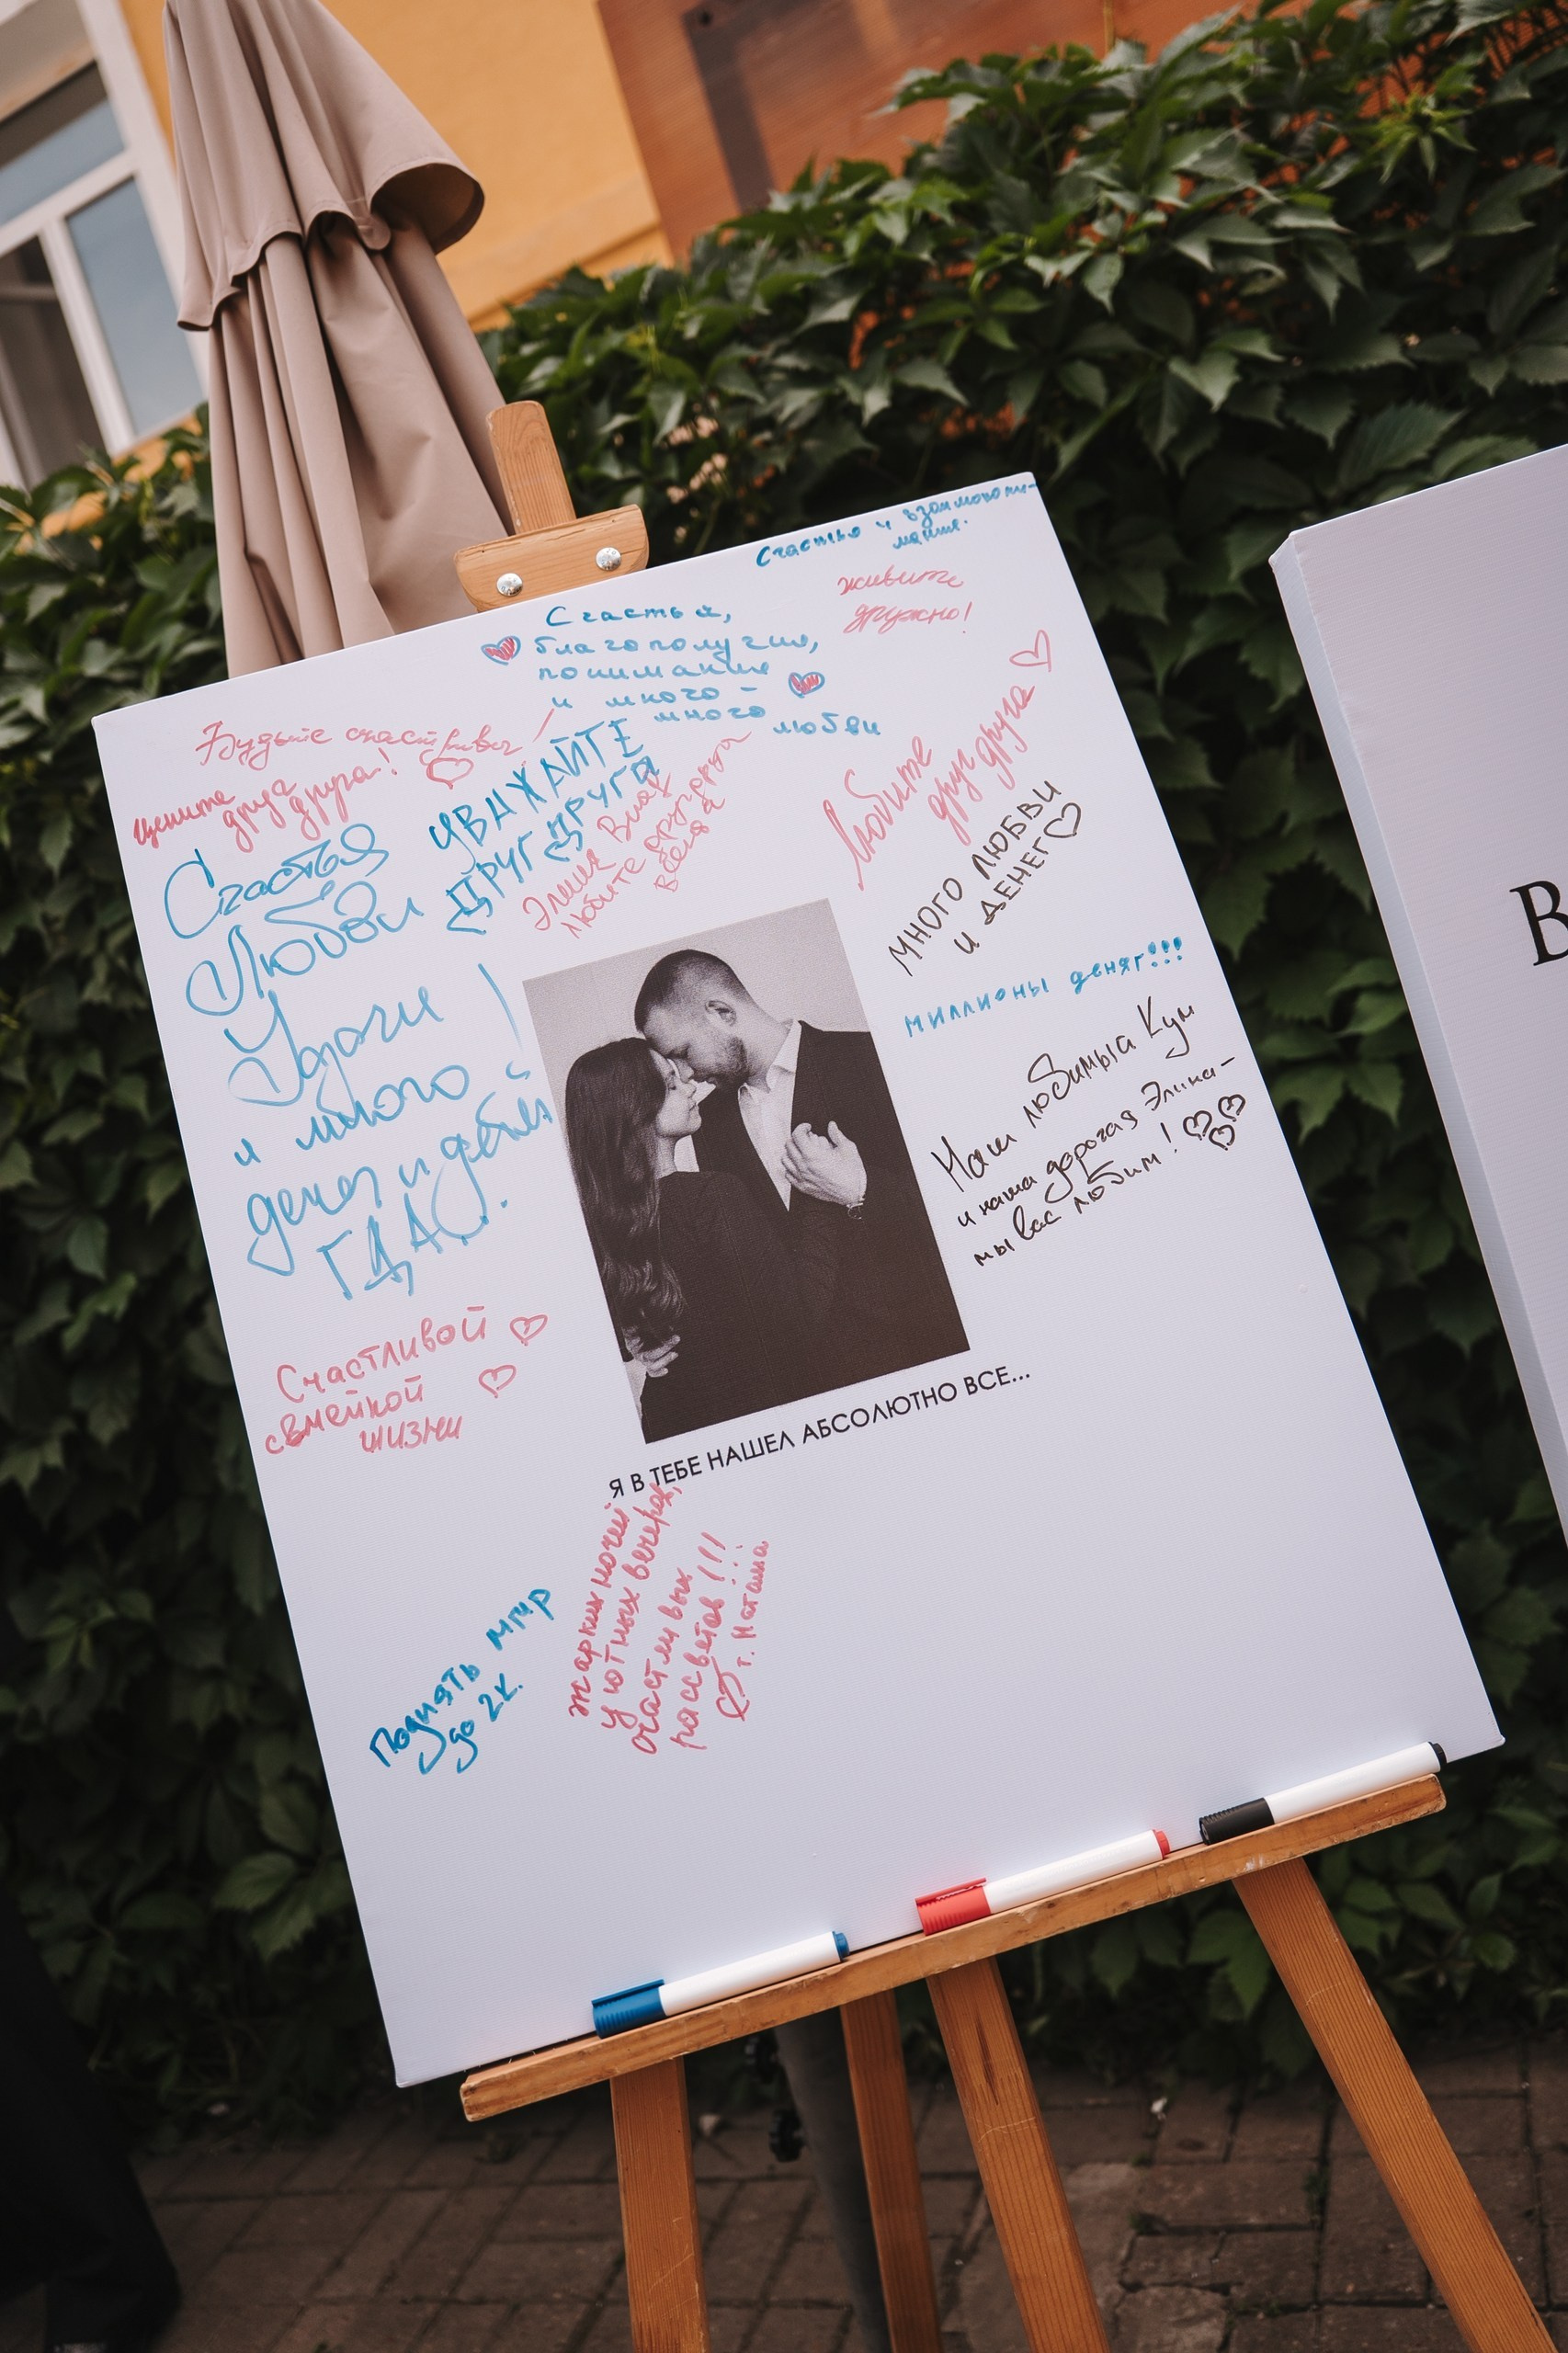 Счастья и взаимопони-
мания.
живите
дружно!
Счастья,
благополучия,
понимания
и много -
много
любви
Будьте счастливы
цените друг
друга!
УВАЖАЙТЕ
ДРУГ ДРУГА
Элина Влад
Любите друг друга
всегда
Любите
друг друга
МНОГО ЛЮБВИ
И ДЕНЕГ
Счастья
Любви
Удачи !
и много
денег и детей
ГДА
миллионы деняг!!!
Наш любимый Кум
и наша дорогая Элина-
мы вас любим!
Счастливой
семейной
жизни
Я В ТЕБЕ НАШЕЛ АБСОЛЮТНО ВСЕ...
жарких ночей
уютных вечеров,
счастливых
рассветов!!!
т. Наташа
Поднять ммр
до 2к.
В